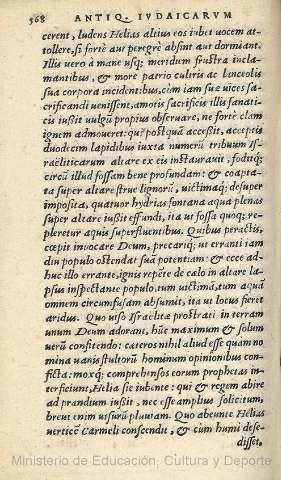 568 ANTIQ. IVDAICARVM
cerent, ludens Helias altius eos iubet vocem at-
tollere, si fortè aut peregrè absint aut dormiant.
Illis vero à mane usq; meridem frustra incla
mantibus, & more patrio cultris ac lanceolis
sua corpora incidentibus, cùm iam suæ vices sa-
crificandi venissent, amotis sacrificis illis fanati-
cis iussit vulgũ propius obseruare, ne fortè clam
ignem admoueret: qui postquã accessit, acceptis
duodecim lapidibus iuxta numerũ tribuum Is-
raëliticarum altare ex eis instaurauit, foditq;
circũ illud fossam bene profundam: & coapta-
ta super altare strue lignorũ, victimaq; desuper
imposita, quatuor hydrias fontana aqua plenas
super altare iussit effundi, ita ut fossa quoq; re-
pleretur aquis superfluentibus. Quibus peractis,
cœpit inuocare Deum, precariq; ut erranti iam
diu populo ostendat suã potentiam: & ecce ad-
huc illo errante, ignis repẽte de cælo in altare la-
psus inspectante populo, tum uictimã, tum aquã
omnem circumfusam absumit, ita ut locus fieret
aridus. Quo uiso Israelitæ prostrati in terram
unum Deum adorant, hũc maximum & solum
verũ confitendo: cæteros nihil aliud esse quàm no
mina vanis stultorũ hominum opinionibus con-
ficta: moxq; comprehensos eorum prophetas in-
terficiunt, Helia sic iubente: qui & regem abire
ad prandium iussit, nec esse amplius solicitum,
breui enim uisurũ pluuiam. Quo abeunte Helias
verticẽ Carmeli conscendit, & cùm humi dese-
disset,
Ministerio de Educación, Cultura y Deporte